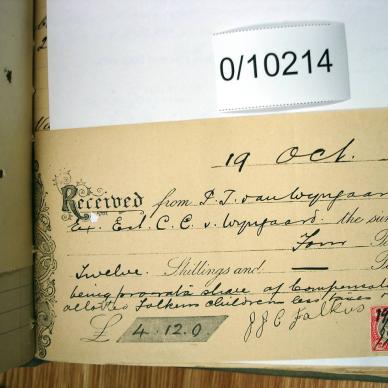 0/10214
19 Oct.
Received from P. J. van Wyngaar
Ex. Est. C. C. v. Wyngaard. the sum
Four P
Twelve. Shillings and —
being prorata share of Compensat
allotted Falkus children less taxes
£ 4.12.0 J J C Falkus
19